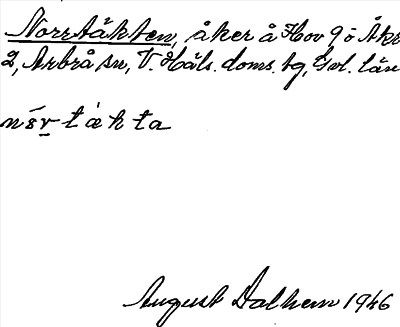 Norrtäkten, åker å Hov 9 o Åkr
2, Arbrå sn, V. Häls. doms. tg, Gvl. län
August Dalhem 1946